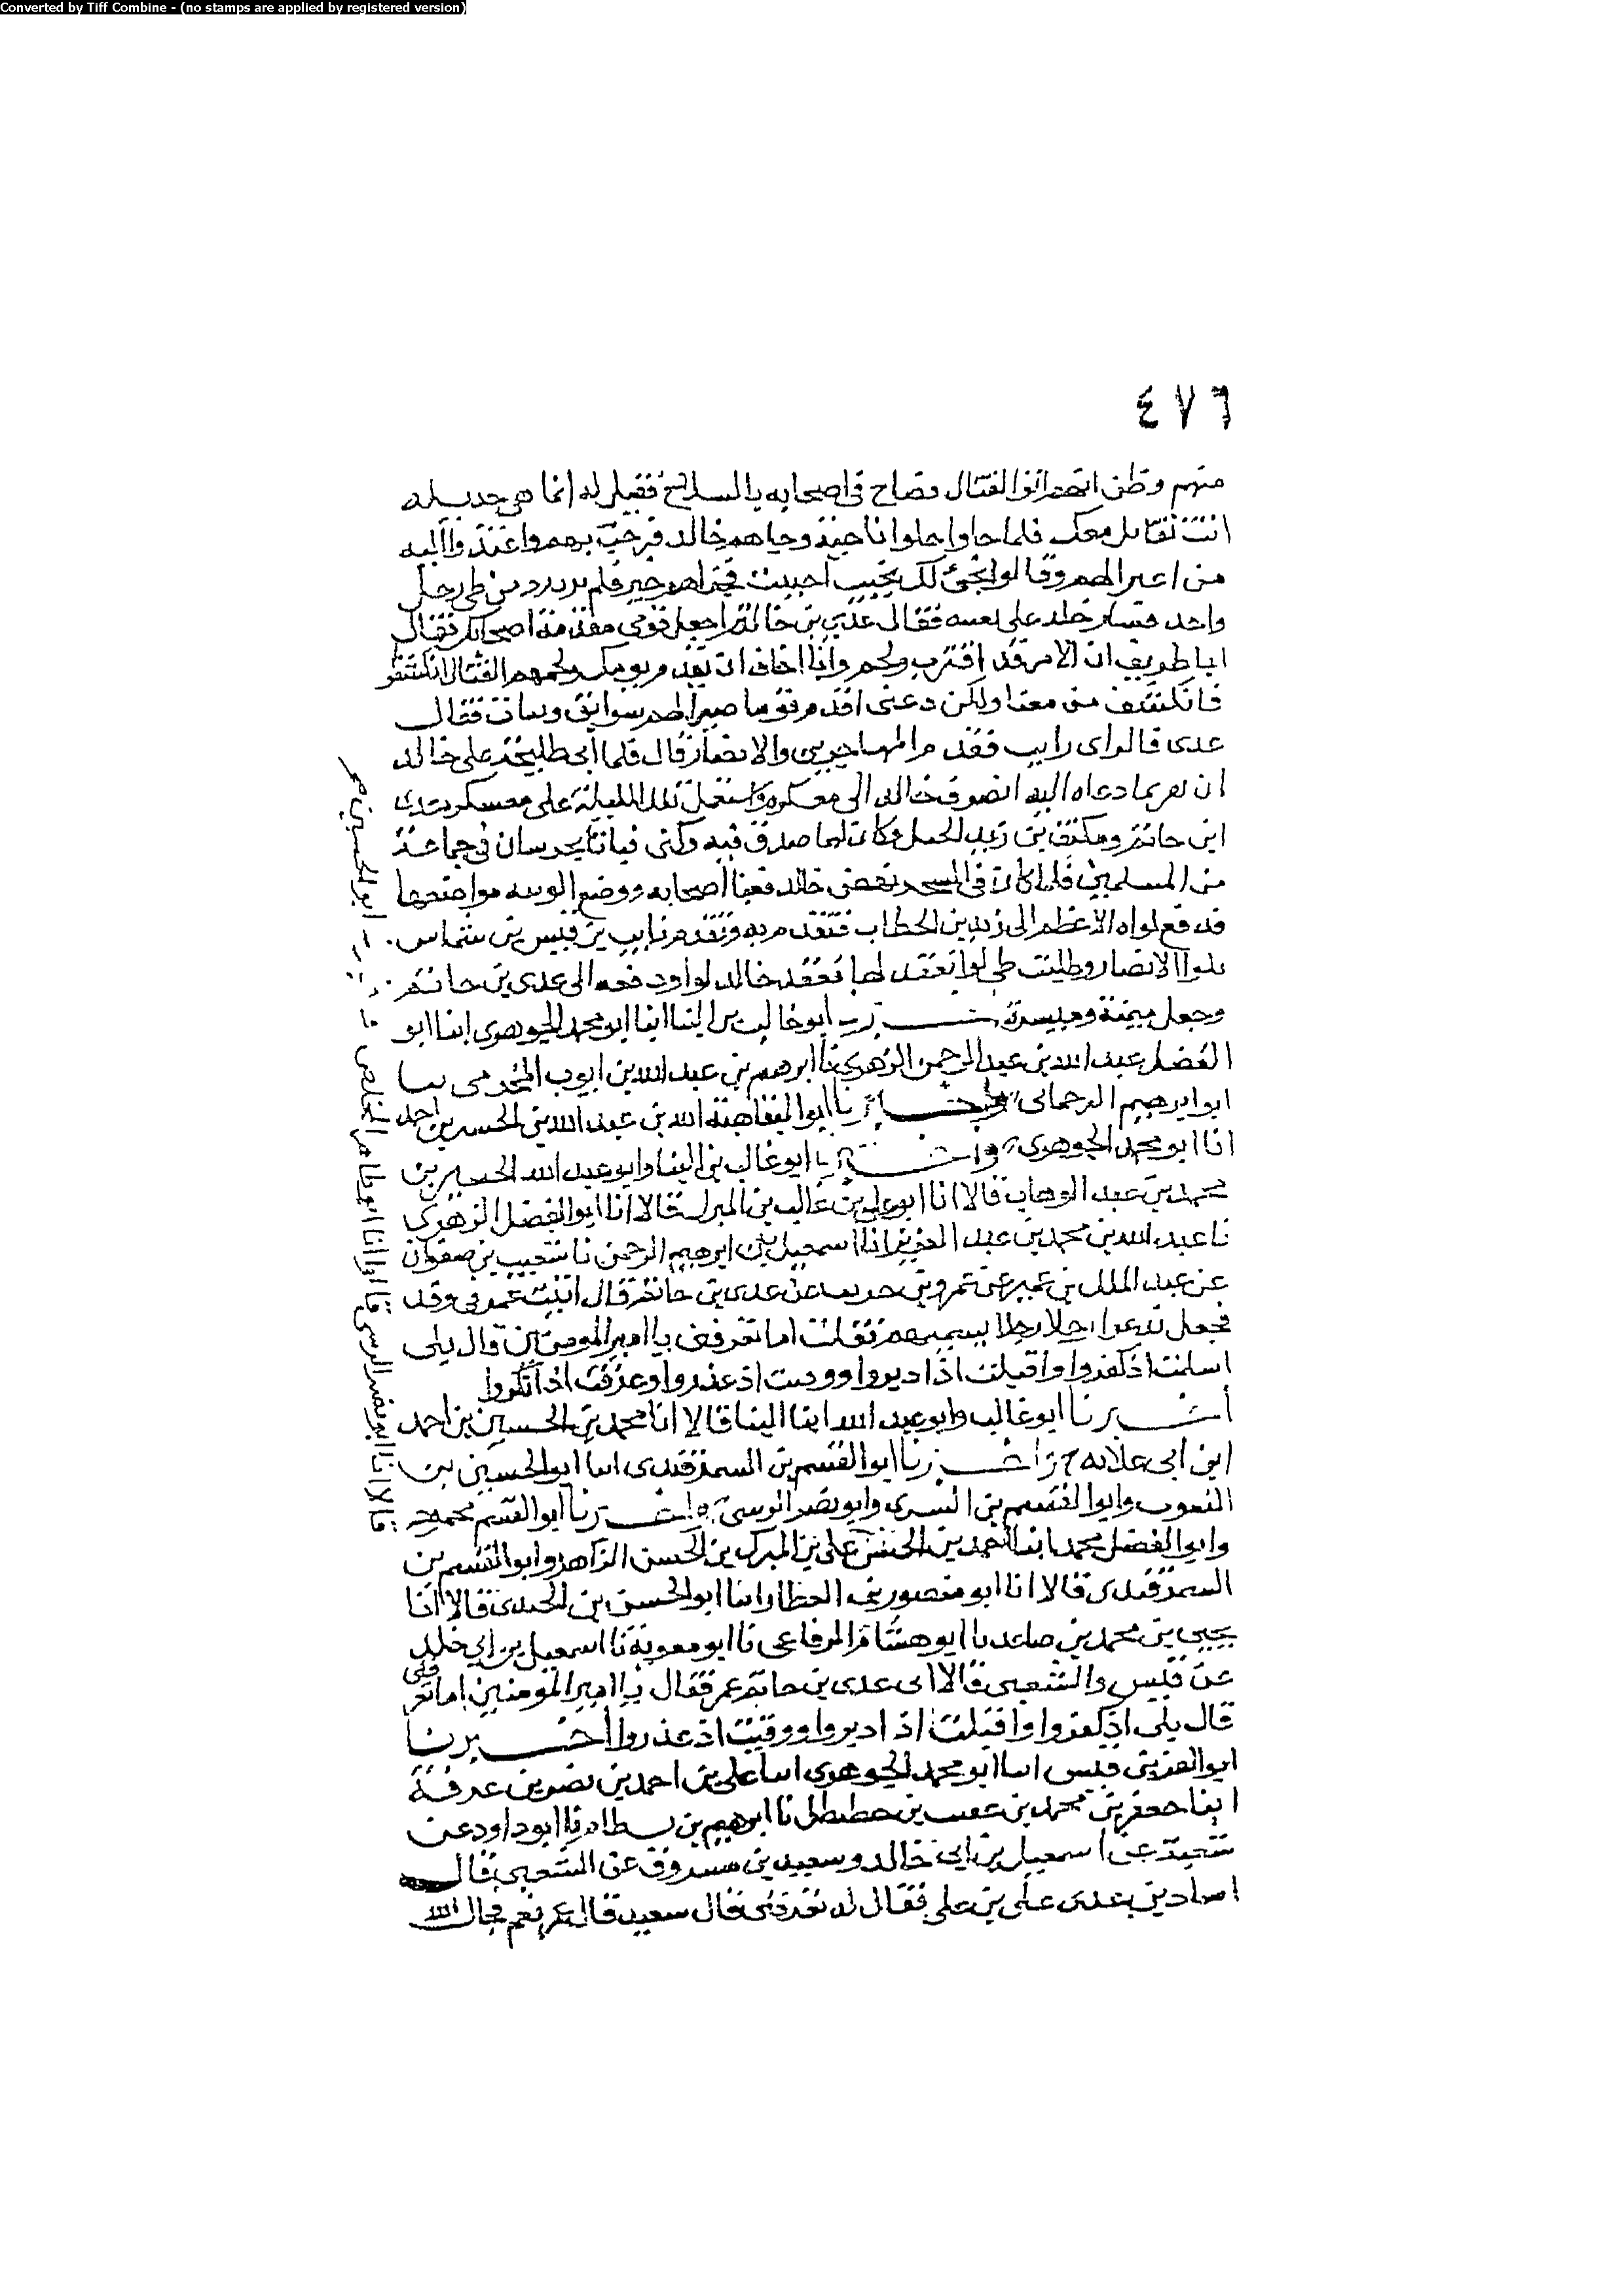 Converted by Tiff Combine - (no stamps are applied by registered version)
٤٧٦
منهم وظن انهم اتوا القتال فصاح في اصحابه يا السلاح فقيل له انما هي جديله
اتت تقاتل معك فلما جاوا حلوا ناحية وجاهم خالد فرحب بهم واعتذروا اليه
من اعتزالهم وقالوا نحن لك بحيث احببت فجزاهم خيرا فلم يرتد من طي رجل
واحد فسار خلد على تعبيه فقال عدي بن حاتم اجعل قومي مقدمة اصحابك فقال
ابا طريف ان الامر قد اقترب ولحم وانا اخاف ان تقدم قومك ولحمهم القتال انكشفوا
فانكشف من معنا ولكن دعني اقدم قوما صبرا لهم سوابق وثبات فقال
عدي فالراي رايت فقدم المهاجرين والانصار قال فلما ابى طليحة على خالد
ان يقر بما دعاه اليه انصرف خالد الى معسكره واستعمل تلك الليلة على معسكره عدي
ابن حاتم ومكنف بن زيد الخيل وكان لهما صدق نيه وكتى فباتا يحرسان في جماعة
من المسلمين فلما كان في السحر نهض خالد فعبا اصحابه ووضع الويته مواضعها
فدفع لواه الاعظم الى زيد بن الخطاب فتقدم به وتقدم ثابت بن قيس بن شماس
بلوا الانصار وطلبت طي لوا يعقد لها فعقد خالد لوا ودفعه الى عدي بن حاتم
وجعل ميمنة وميسرة اخبرنا ابو غالب بن البنا انبا ابو محمد الجوهري انبا ابو
الفضل عبد الله بن عبد الرحمن الزهري نا ابرهيم بن عبد الله بن ايوب المخرمي نا
ابو ابرهيم الترجماني واخبرنا ابو البقا هبة الله بن عبد الله بن الحسين بن احمد
انا ابو محمد الجوهري واخبرنا ابو غالب بن البنا وابو عبد الله الحسين بن
محمد بن عبد الوهاب قالا انا ابو علي بن غالب بن المبرك قالا انا ابو الفضل الزهري
نا عبد الله بن محمد بن عبد العزيز انا اسمعيل بن ابرهيم الرحمن نا شعيب بن صفوان
عن عبد الملك بن عمير عن عمرو بن حريث عن عدي بن حاتم قال اتيت عمر في وفد
فجعل يدعوا رجلا رجلا يسميهم فقلت اما تعرفني يا امير المومنين قال بلى
اسلمت اذ كفروا واقبلت اذ ادبروا ووفيت اذ غدروا وعرفت اذ انكروا
اخبرنا ابو غالب وابو عبد الله ابنا البنا قالا انا محمد بن الحسين بن احمد
ابن ابي علانه ح واخبرنا ابو القسم بن السمرقندي انبا ابو الحسين بن
النقور وابو القسم بن البسري وابو نصر الزينبي ح واخبرنا ابو القسم محمود
وابو الفضل محمد ابنا احمد بن الحسن علي بن المبرك بن الحسن الزاهد وابو القسم بن
السمرقندي قالا انا ابو منصور بن العطار انبا ابو الحسن بن الجندي قالا انا
يحيى بن محمد بن صاعد نا ابو هشام الرفاعي نا ابو معوية نا اسمعيل بن ابي خلد
عن قيس والشعبي قالا اتى عدي بن حاتم عمر فقال يا امير المومنين اما تعرفني
قال بلى اذ كفروا واقبلت اذ ادبروا ووفيت اذ غدروا اخبرنا
ابو العز بن قيس انبا ابو محمد الجوهري انبا علي بن احمد بن نصر بن عرفة
انبا جعفر بن محمد بن نا ابرهيم بن بسطام نا ابو داود عن
شعبة عن اسمعيل بن ابي خالد وسعيد بن مسروق عن الشعبي قال
بن علي فقال له تعرفني قال سعيد قال عمر نعم
قالا انا ابو نصر قالا انا ابو طاهر المخلص ابو الحسين